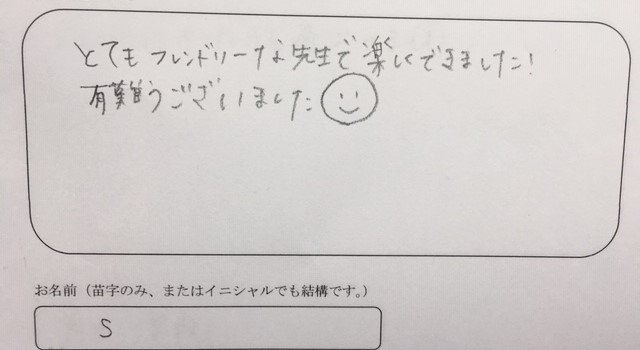 とてもフレンドリーな先生で楽しくできました!
有難うございました
お名前（苗字のみ、またはイニシャルでも結構です。）
S